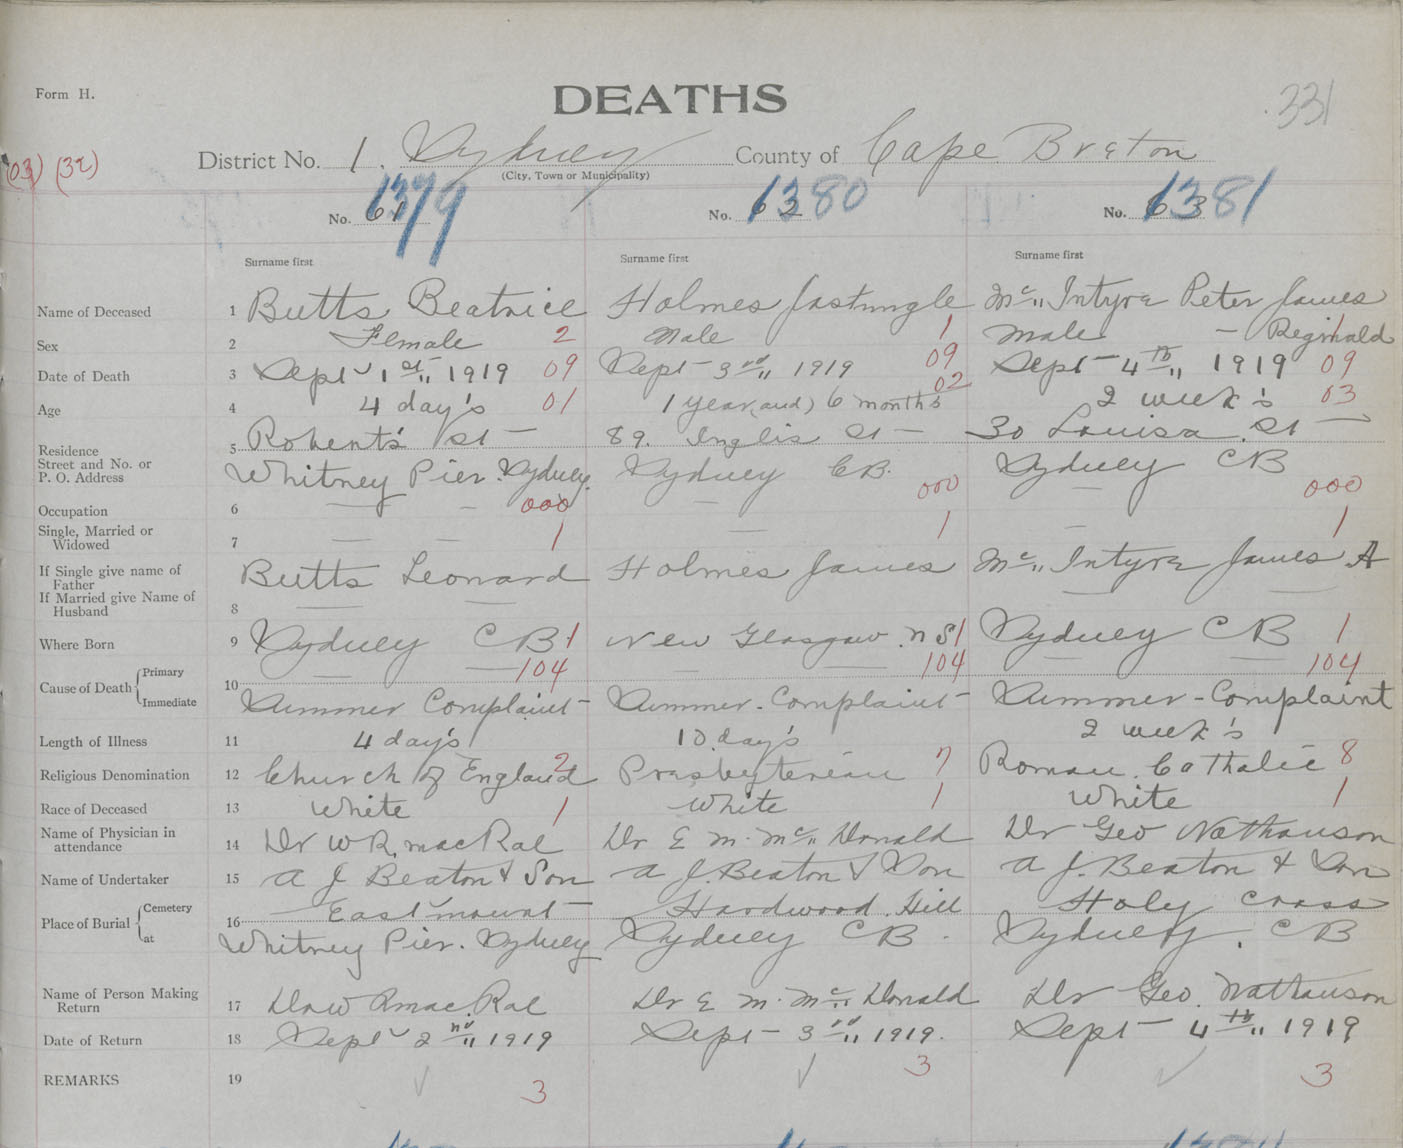 Form H.
DEATHS
331
(03) (32)
District No. 1. Sydney County of Cape Breton
(City, Town or Municipality)
1379 1380 1381
No. 61 No. 62 No. 63
Surname first Surname first Surname first
Name of Deceased 1 Butts Beatrice Holmes Mc Intyre Peter James
Sex 2 Female 2 Male 1 Male - Reginald 1
Date of Death 3 Sept 1st 1919 09 Sept - 3rd 1919 09 Sept - 4th 1919 09
Age 4 4 day's 01 1 year (and) 6 months 02 2 week's 03
Residence
Street and No. or
P. O. Address
5 Robert's St - 89. Inglis St - 30 Louisa. St -
Whitney Pier. Sydney. Sydney CB. Sydney CB
Occupation 6 — - 000 — 000 — 000
Single, Married or
Widowed
7 — — 1 — 1 — 1
If Single give name of
Father
Butts Leonard Holmes James Mc Intyre James A
If Married give Name of
Husband
8 — — — —
Where Born 9 Sydney CB 1 New Glasgow. N S 1 Sydney CB 1
Cause of Death Primary — 104 — — 104 — — 104
Immediate 10 Summer Complaint - Summer - Complaint - Summer - Complaint
Length of Illness 11 4 day's 10 day's 2 week's
Religious Denomination 12 Church of England 2 Presbyterian 7 Roman. Catholic 8
Race of Deceased 13 White 1 White 1 White 1
Name of Physician in
attendance
14 Dr W R. Mac Rae Dr E M. Mc Donald Dr Geo Nathanson
Name of Undertaker 15 A J Beaton & Son A J. Beaton & Son A J. Beaton & Son
Place of Burial Cemetery East mount - Hardwood. Hill Holy Cross
at 16 Whitney Pier. Sydney Sydney CB. Sydney. CB
Name of Person Making
Return
17 Dr W R Mac. Rae Dr E M. Mc Donald Dr Geo. Nathanson
Date of Return 18 Sept 2nd 1919 Sept - 3rd 1919. Sept - 4th 1919
REMARKS 19 ✓ 3 ✓ 3 ✓ 3